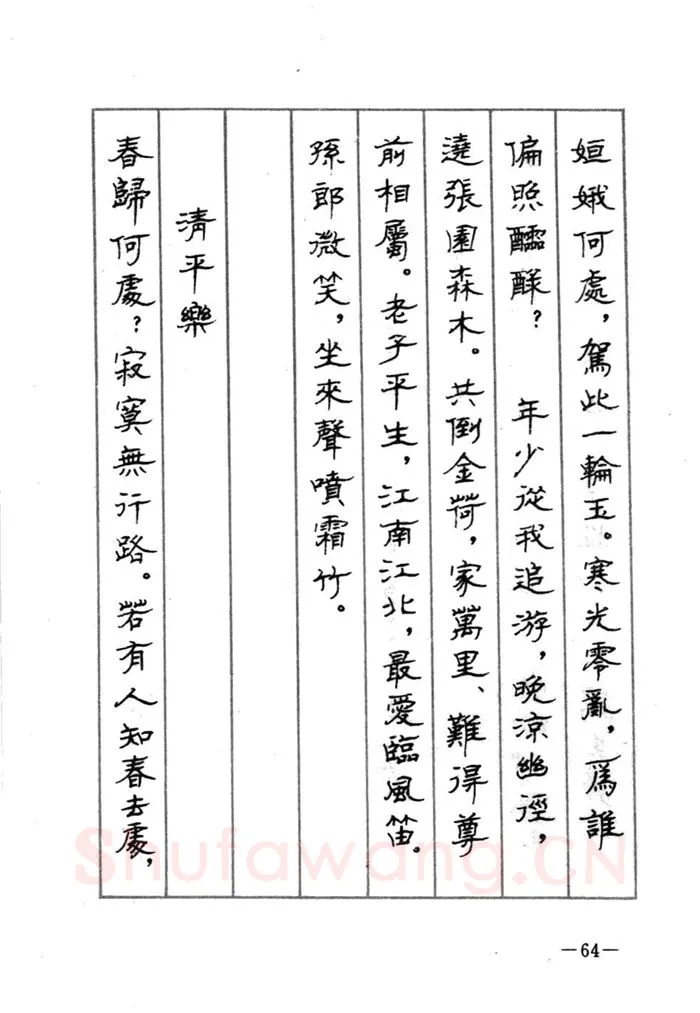 姮娥何處，駕此一輪玉。寒光零亂，爲誰
偏照醽醁？　年少從我追游，晚涼幽徑，
遶張園森木。共倒金荷，家萬里、難得尊
前相屬。老子平生，江南江北，最愛臨風笛。
孫郎微笑，坐來聲噴霜竹。
清平樂
春歸何處？寂寞無行路。若有人知春去處，
Shufawang.CN
—64—